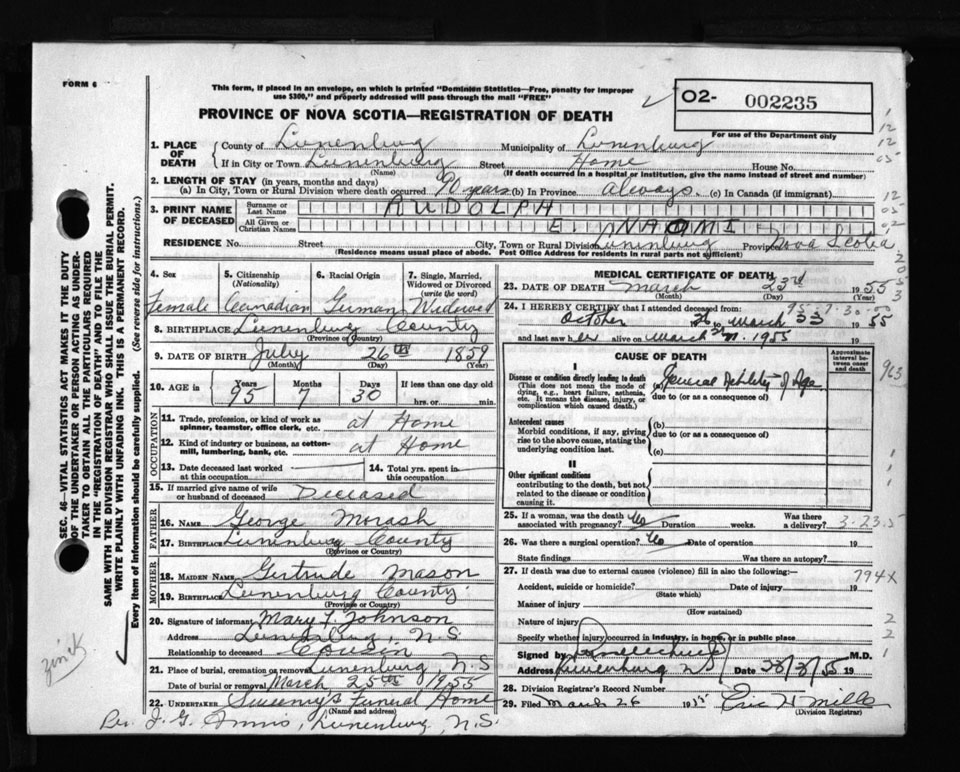 FORM 6
This form, if placed in an envelope, on which is printed "Dominion Statistics—Free, penalty for improper
use $300," and properly addressed will pass through the mail "FREE"
PROVINCE OF NOVA SCOTIA—REGISTRATION OF DEATH
O2- 002235
For use of the Department only
1. PLACE OF DEATH
County of Lunenburg Municipality of Lunenburg
If in City or Town Lunenburg Street Home House No.
(Name) (If death occurred in a hospital or institution, give the name instead of street and number)
2. LENGTH OF STAY (in years, months and days)
(a) In City, Town or Rural Division where death occurred 90 years (b) In Province always. (c) In Canada (if immigrant)
3. PRINT NAME OF DECEASED
Surname or Last Name RUDOLPH
All Given or Christian Names E. NAOMI
RESIDENCE No. Street City, Town or Rural Division Lunenburg Province Nova Scotia
(Residence means usual place of abode. Post Office Address for residents in rural parts not sufficient)
4. Sex Female
5. Citizenship (Nationality) Canadian
6. Racial Origin German
7. Single, Married, Widowed or Divorced (write the word) Widowed
8. BIRTHPLACE Lunenburg County
(Province or Country)
9. DATE OF BIRTH July 26th 1859
(Month) (Day) (Year)
10. AGE in Years 95 Months 7 Days 30 If less than one day old
hrs. or min.
OCCUPATION
11. Trade, profession, or kind of work as spinner, teamster, office clerk, etc. at Home
12. Kind of industry or business, as cotton-mill, lumbering, bank, etc. at Home
13. Date deceased last worked at this occupation
14. Total yrs. spent in this occupation
15. If married give name of wife or husband of deceased Deceased
FATHER
16. NAME George Morash
17. BIRTHPLACE Lunenburg County
(Province or Country)
MOTHER
18. MAIDEN NAME Gertrude Mason
19. BIRTHPLACE Lunenburg County
(Province or Country)
20. Signature of informant Mary J. Johnson
Address Lunenburg, N.S.
Relationship to deceased Cousin
21. Place of burial, cremation or removal Lunenburg N.S
Date of burial or removal March 25th 1955
22. UNDERTAKER Sweeny's Funeral Home
(Name and address)
J. G. Lunenburg, N.S.
MEDICAL CERTIFICATE OF DEATH
23. DATE OF DEATH March 23rd 1955
(Month) (Day) (Year)
24. I HEREBY CERTIFY that I attended deceased from:
October to March 1955
and last saw her alive on March 1955
CAUSE OF DEATH
Approximate interval between onset and death
I
Disease or condition directly leading to death (a) General debility of Age
(This does not mean the mode of dying, e.g., heart failure, asthenia, etc. It means the disease, injury, or complication which caused death.)
due to (or as a consequence of)
Antecedent causes (b)
Morbid conditions, if any, giving rise to the above cause, stating the underlying condition last.
due to (or as a consequence of)
(c)
II
Other significant conditions
contributing to the death, but not related to the disease or condition causing it.
25. If a woman, was the death associated with pregnancy? No Duration weeks. Was there a delivery?
26. Was there a surgical operation? No Date of operation 19
State findings Was there an autopsy?
27. If death was due to external causes (violence) fill in also the following:—
Accident, suicide or homicide? Date of injury 19
(State which)
Manner of injury
(How sustained)
Nature of injury
Specify whether injury occurred in industry, in home, or in public place
Signed by M.D.
Address Lunenburg NS Date 19
28. Division Registrar's Record Number
29. Filed March 26 1955 Eric H Mills
(Division Registrar)
963
3-23-5
794X
zinck
SEC. 46—VITAL STATISTICS ACT MAKES IT THE DUTY
OF THE UNDERTAKER OR PERSON ACTING AS UNDER-
TAKER TO OBTAIN ALL THE PARTICULARS REQUIRED
IN THE "REGISTRATION OF DEATH" AND TO FILE THE
SAME WITH THE DIVISION REGISTRAR WHO SHALL ISSUE THE BURIAL PERMIT.
WRITE PLAINLY WITH UNFADING INK. THIS IS A PERMANENT RECORD.
Every item of information should be carefully supplied. (See reverse side for instructions.)